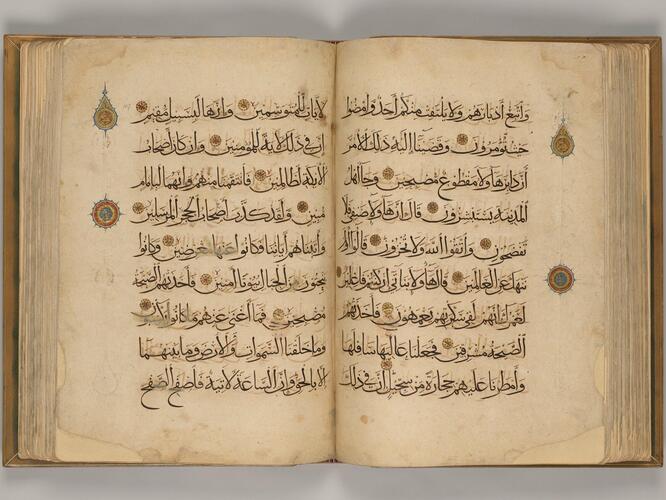 واتبع أدبارهم ولا يلتفت منكم أحد وامضوا
حيث تؤمرون وقضينا إليه ذلك الأمر
أن دابر هؤلاء مقطوع مصبحين وجاء أهل
المدينة يستبشرون قال إن هؤلاء ضيفي فلا
تفضحون واتقوا الله ولا تخزون قالوا أولم
ننهك عن العالمين قال هؤلاء بناتي إن كنتم فاعلين
لعمرك إنهم لفي سكرتهم يعمهون فأخذتهم
الصيحة مشرقين فجعلنا عاليها سافلها
وأمطرنا عليهم حجارة من سجيل إن في ذلك
لآيات للمتوسمين وإنها لبسبيل مقيم
إن في ذلك لآية للمؤمنين وإن كان أصحاب
الأيكة لظالمين فانتقمنا منهم وإنهما لبإمام
مبين ولقد كذب أصحاب الحجر المرسلين
وآتيناهم آياتنا فكانوا عنها معرضين وكانوا
ينحتون من الجبال بيوتا آمنين فأخذتهم الصيحة
مصبحين فما أغنى عنهم ما كانوا يكسبون
وما خلقنا السموات والأرض وما بينهما
إلا بالحق وإن الساعة لآتية فاصفح الصفح